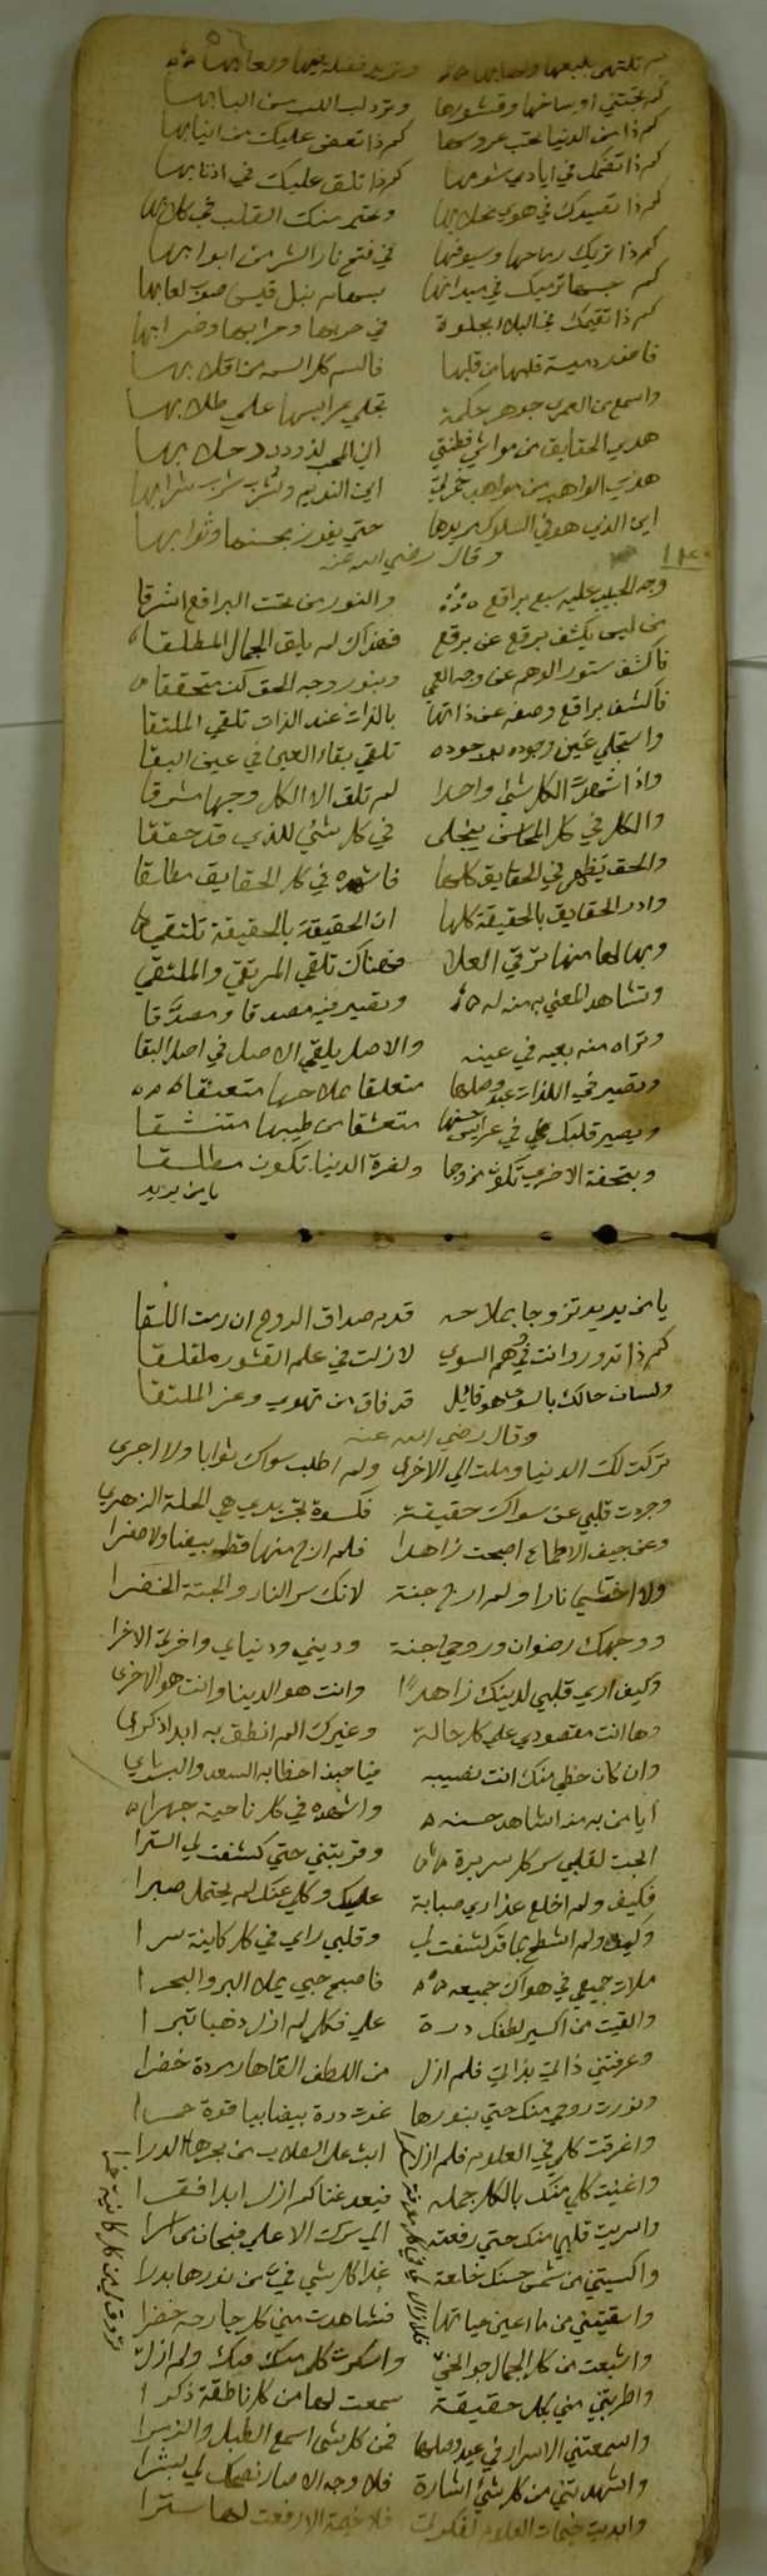 كم تجتني اوساخها وقشورها وترد لب اللب من البابها
كم ذا من الدنيا تحب عروسها كم ذا تعض عليك من انيابها
كم ذا تضحك في ايادي شومها كم ذا تلق عليك في اذنابها
كم ذا تصيدك في هوي
كم ذا تريك رماحها وسيوفها في فتح نار الشر من ابوابها
كم سهما ترميك في ميدانها
كم ذا تقيمك في البلاء بجلوة في حربها وحرابها وضرابها
واسمع من العرب جوهر حكمة تجلي عرايسها علي طلابها
هدي الحقايق من مواشي فطنتي اين المحب
هذي المواهب من مواهب خمرتي اين النديم وشرب شرابها
اين الذي هو في السلوك يريدها حتي يفوز بحسنها وثوابها
وقال رضي الله عنه
وجه الحبيب عليه سبع براقع والنور من تحت البراقع اشرقا
من ليس يكشف برقع عن برقع فهناك لم يلق الجمال المطلقا
فاكشف ستور الوهم عن وجه العمي وبنور وجه الحق كن متحققا
فاكشف براقع وصفه عن ذاتها بالذات عند الذات تلقي الملتقا
واستجلي عين وجوده بوجوده تلقي بقاء العين في عين البقا
واذا شهدت الكل شئ واحدا لم تلق الا الكل وجها مشرقا
والكل في كل المحاسن ينجلي في كل شئ للذي قد حققا
والحق يظهر في الحقايق كلها فاشهده في كل الحقايق مطلقا
وادر الحقايق بالحقيقة كلها ان الحقيقة بالحقيقة تلتقي
وبها لها منها ترقي العلا فهناك تلقي المرتقي والملتقي
وتشاهد المعني به منه له وتصير فيه مصدقا ومصدَّقا
وتراه منه بعينه في عينه والاصل يلقي الاصل في اصل البقا
وتصير في اللذات عيد وصلها متعلقا بملاحها متعشقا
ويصير قلبك في عرايس حسنها متعشقا من طيبها متنشقا
وبتحفة الاخري تكون مزوجا ولضرة الدنيا تكون مطلقا
يا من يريد
يا من يريد تزوجا بملاحه قدم صداق الروح ان رمت اللقا
كم ذا تدور وانت في وهم السوي لا زلت في علم القشور ملقلقا
ولسان حالك بالسوي هو قائل قد فاق من تهوي وعز الملتقا
وقال رضي الله عنه
تركت لك الدنيا وملت الي الاخري ولم اطلب سواك ثوابا ولا اجري
وجردت قلبي عن سواك حقيقة فكسوة تجريدي هي الحلة الزهري
وعن جيف الاطماع اصبحت زاهدا فلم ارج منها قط بيضا ولا صفرا
ولا اختشي نارا ولم ارج جنة لانك سر النار والجنة الخضرا
ووجهك رضوان وروحي جنة وديني ودنياي واخرتي الاخرا
وكيف اري قلبي لدينك زاهدًا وانت هو الدينا وانت هو الاخري
وها انت مقصودي علي كل حالة وغيرك لم انطق به ابدا ذكري
وان كان حظي منك انت نصيبه فيا حبذا حظا به السعد والبشراي
ايا من به منه اشاهد حسنه واشهده في كل ناحية جهرا
ابحت لقلبي سر كل سريرة وقربتني حتي كشفت لي السترا
فكيف ولم اخلع عذاري صبابة عليك وكلي عنك لم يحتمل صبرا
وكيف ولم اشطح بما قد كشفت لي وقلبي راي في كل كاينة سرا
ملات جميعي في هواك جميعه فاصبح حبي يملا البر والبحرا
والقيت من اكسير لطفك درة علي فكلي لم ازل ذهبا تبرا
وعرفتني ذاتي بذاتي فلم ازل من اللطف القاها زمردة خضرا
ونورت روحي منك حتي بنورها غدت درة بيضا بياقوتة حمرا
واغرقت كلي في العلوم فلم ازل ابث علي الطلاب من بحرها الدرا
واغنيت كلي منك بالكل جملة فبعد غناكم لم ازل ابدا فقرا
واسريت قلبي منك حتي رفعته الي سرك الاعلي فسبحان من اسرا
واكسيتني من شمس حسنك خلعة غدا كل شي في من نورها بدرا
واسقيتني من ماء عين حياتها فشاهدت مني كل جارحة خضرا
واشبعت من كل الجمال جوانحي واسكرت كلي منك فيك ولم ازل
واطربتني مني بكل حقيقة سمعت لها من كل ناطقة ذكرا
واسمعتني الاسرار في عيد وصلها فمن كل شئ اسمع الطبل والزمرا
واشهدتني من كل شئ اشارة فلا وجه الا صار يضحك لي بشرا
وابديت خيمات العلوم لفكرتي فلا خيمة الا رفعت لها سترا